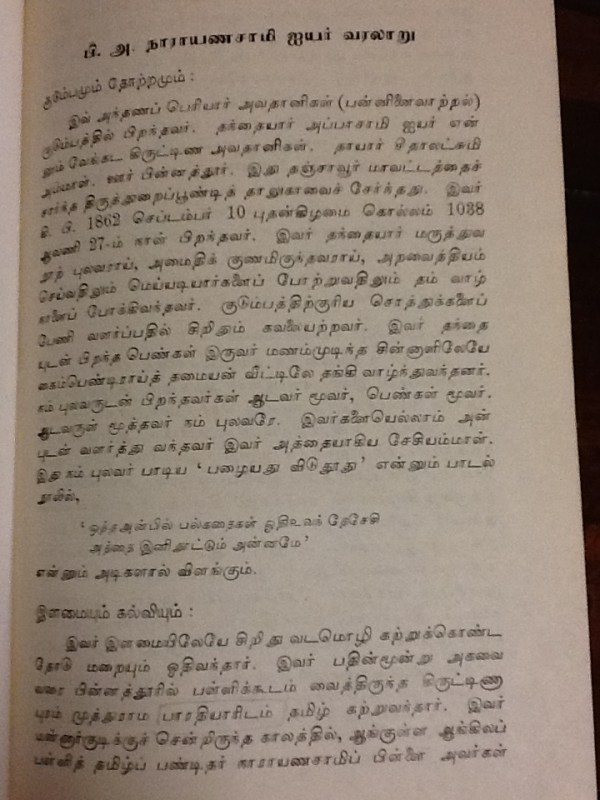 பி. அ. நாராயணசாமி ஐயர் வரலாறு
குடும்பமும் தோற்றமும் :
இவ் அந்தணப் பெரியார் அவதானிகள் (பன்னினைவாற்றல்)
குடும்பத்தில் பிறந்தவர். தந்தையார் அப்பாசாமி ஐயர் என்
னும் வேங்கட கிருட்டிண அவதானிகள். தாயார் சீதாலட்சுமி
அம்மாள். ஊர் பின்னத்தூர். இது தஞ்சாவூர் மாவட்டத்தைச்
சார்ந்த திருத்துறைப்பூண்டித் தாலுகாவைச் சேர்ந்தது. இவர்
கி. பி. 1862 செப்டம்பர் 10 புதன்கிழமை கொல்லம் 1038
ஆவணி 27-ம் நாள் பிறந்தவர். இவர் தந்தையார் மருத்துவ
நூற் புலவராய், அமைதிக் குணமிருந்தவராய், அறவைத்தியம்
செய்வதிலும் மெய்யடியார்களைப் போற்றுவதிலும் தம் வாழ்
நாளைப் போக்கிவந்தவர். குடும்பத்திற்குரிய சொத்துக்களைப்
பேணி வளர்ப்பதில் சிறிதும் கவலையற்றவர். இவர் தந்தை
யுடன் பிறந்த பெண்கள் இருவர் மணம்முடிந்த சின்னாளிலேயே
கைம்பெண்டிராய்த் தமையன் வீட்டிலே தங்கி வாழ்ந்துவந்தனர்.
நம் புலவருடன் பிறந்தவர்கள் ஆடவர் மூவர், பெண்கள் மூவர்.
ஆடவருள் மூத்தவர் நம் புலவரே. இவர்களையெல்லாம் அன்
புடன் வளர்த்து வந்தவர் இவர் அத்தையாகிய சேசியம்மாள்.
இது நம் புலவர் பாடிய ‘பழையது விடுதூது’ என்னும் பாடல்
நூலில்,
‘ஒத்தஅன்பில் பல்கதைகள் ஓதிஉவந் தேசேசி
அத்தை இனிதூட்டும் அன்னமே’
என்னும் அடிகளால் விளங்கும்.
இளமையும் கல்வியும் :
இவர் இளமையிலேயே சிறிது வடமொழி கற்றுக்கொண்ட
தோடு மறையும் ஓதிவந்தார். இவர் பதின்மூன்று அகவை
வரை பின்னத்தூரில் பள்ளிக்கூடம் வைத்திருந்த கிருட்டிணா
புரம் முத்துராம பாரதியாரிடம் தமிழ் கற்றுவந்தார். இவர்
மன்னார்குடிக்குச் சென்றிருந்த காலத்தில், ஆங்குள்ள ஆங்கிலப்
பள்ளித் தமிழ்ப் பண்டிதர் நாராயணசாமிப் பிள்ளை அவர்கள்